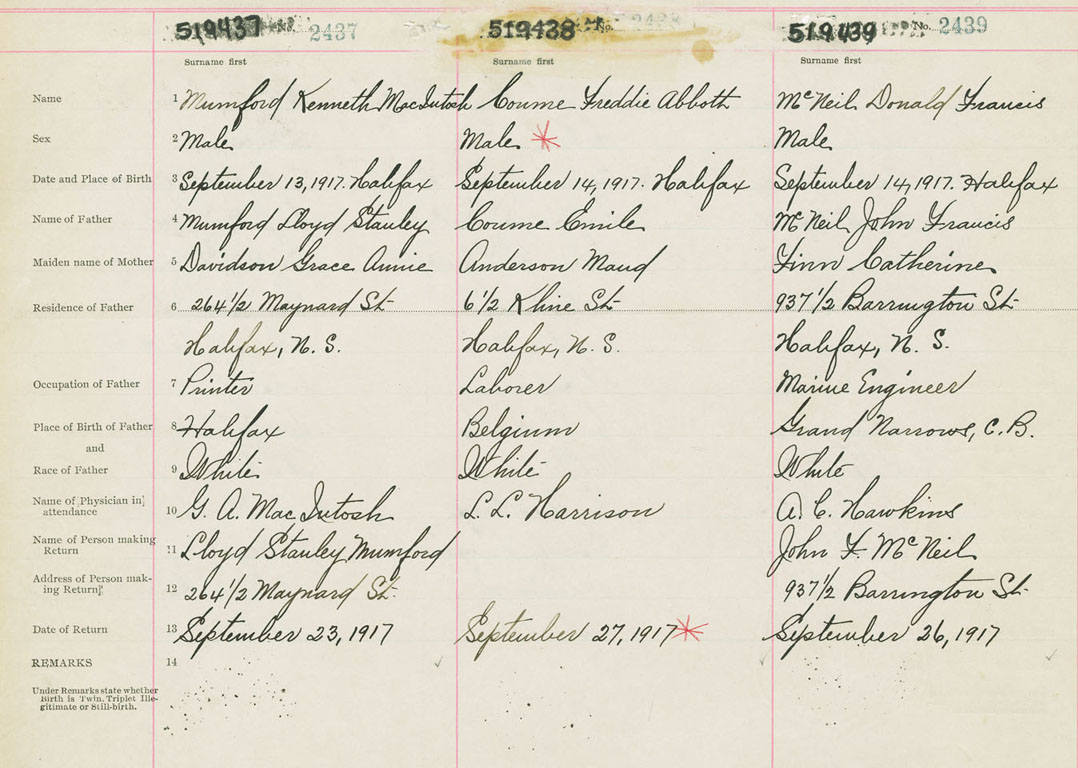 519437 No. 2437 519438 No. 2438 519439 No. 2439
Surname first Surname first Surname first
Name 1 Mumford Kenneth MacIntosh Coume Freddie Abboth McNeil Donald Francis
Sex 2 Male Male Male
Date and Place of Birth 3 September 13, 1917. Halifax September 14, 1917. Halifax September 14, 1917. Halifax
Name of Father 4 Mumford Lloyd Stanley Coume Emile McNeil John Francis
Maiden name of Mother 5 Davidson Grace Annie Anderson Maud Finn Catherine
Residence of Father 6 264 1/2 Maynard St. 6 1/2 Kline St. 937 1/2 Barrington St.
Halifax, N. S. Halifax, N. S. Halifax, N. S.
Occupation of Father 7 Printer Laborer Marine Engineer
Place of Birth of Father 8 Halifax Belgium Grand Narrows, C.B.
and
Race of Father 9 White White White
Name of Physician in
attendance 10 G. A. MacIntosh L. L. Harrison A. C. Hawkins
Name of Person making
Return 11 Lloyd Stanley Mumford John F. McNeil
Address of Person mak-
ing Return 12 264 1/2 Maynard St. 937 1/2 Barrington St.
Date of Return 13 September 23, 1917 September 27, 1917 September 26, 1917
REMARKS 14
Under Remarks state whether
Birth is Twin, Triplet Ille-
gitimate or Still-birth.